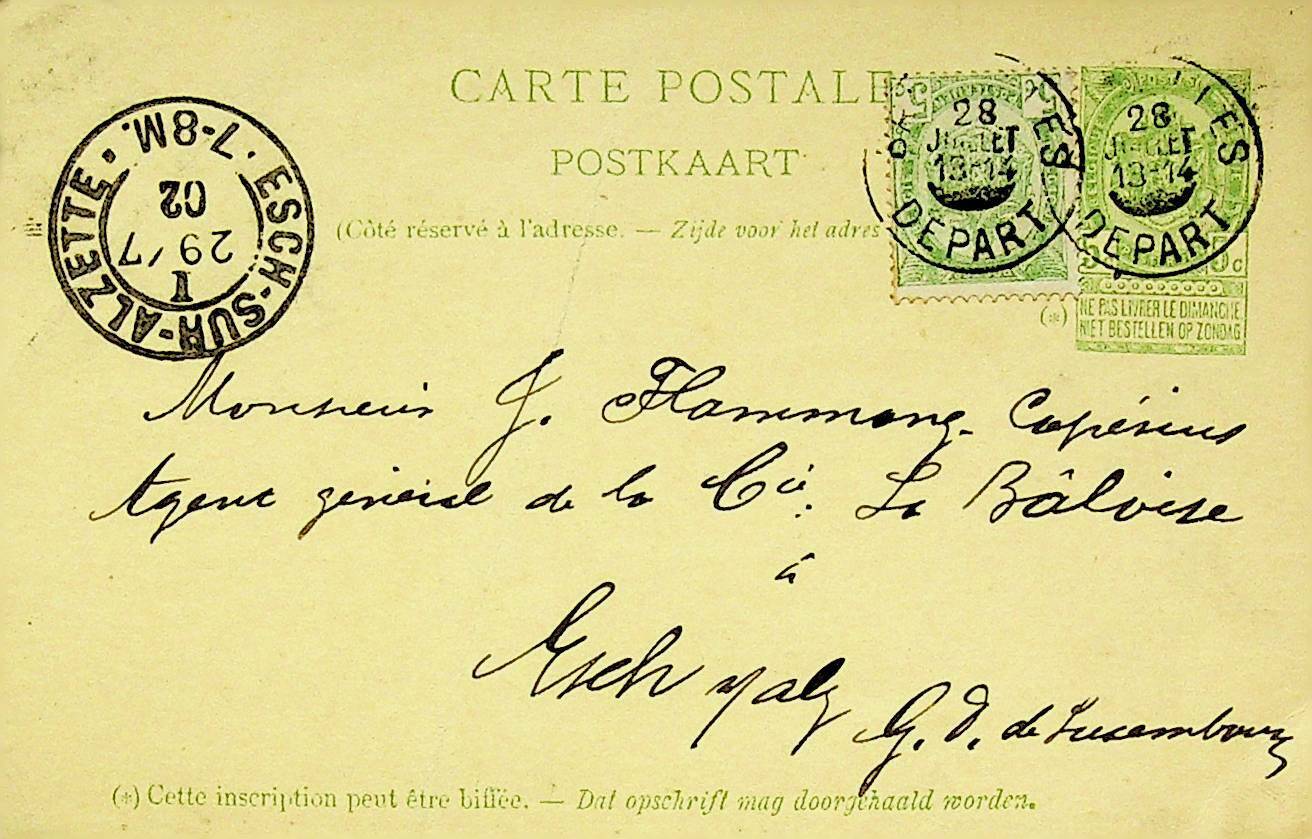 CARTE POSTALE
POSTKAART
(Côté réservé à l'adresse. — Zijde voor het adres
28
JUILLET
13-14
DEPART
28
JUILLET
13-14
DEPART
ESCH-SUR-ALZETTE
7-8M.
02
29/7
1
(*)
NE PAS LIVRER LE DIMANCHE
NIET BESTELLEN OP ZONDAG
Monsieur J. Flammang-Copérius
Agent général de la Cie. La Bâloise
à
Esch s/alz
G. D. de Luxembourg
(*) Cette inscription peut être biffée. — Dat opschrift mag doorgehaald worden.